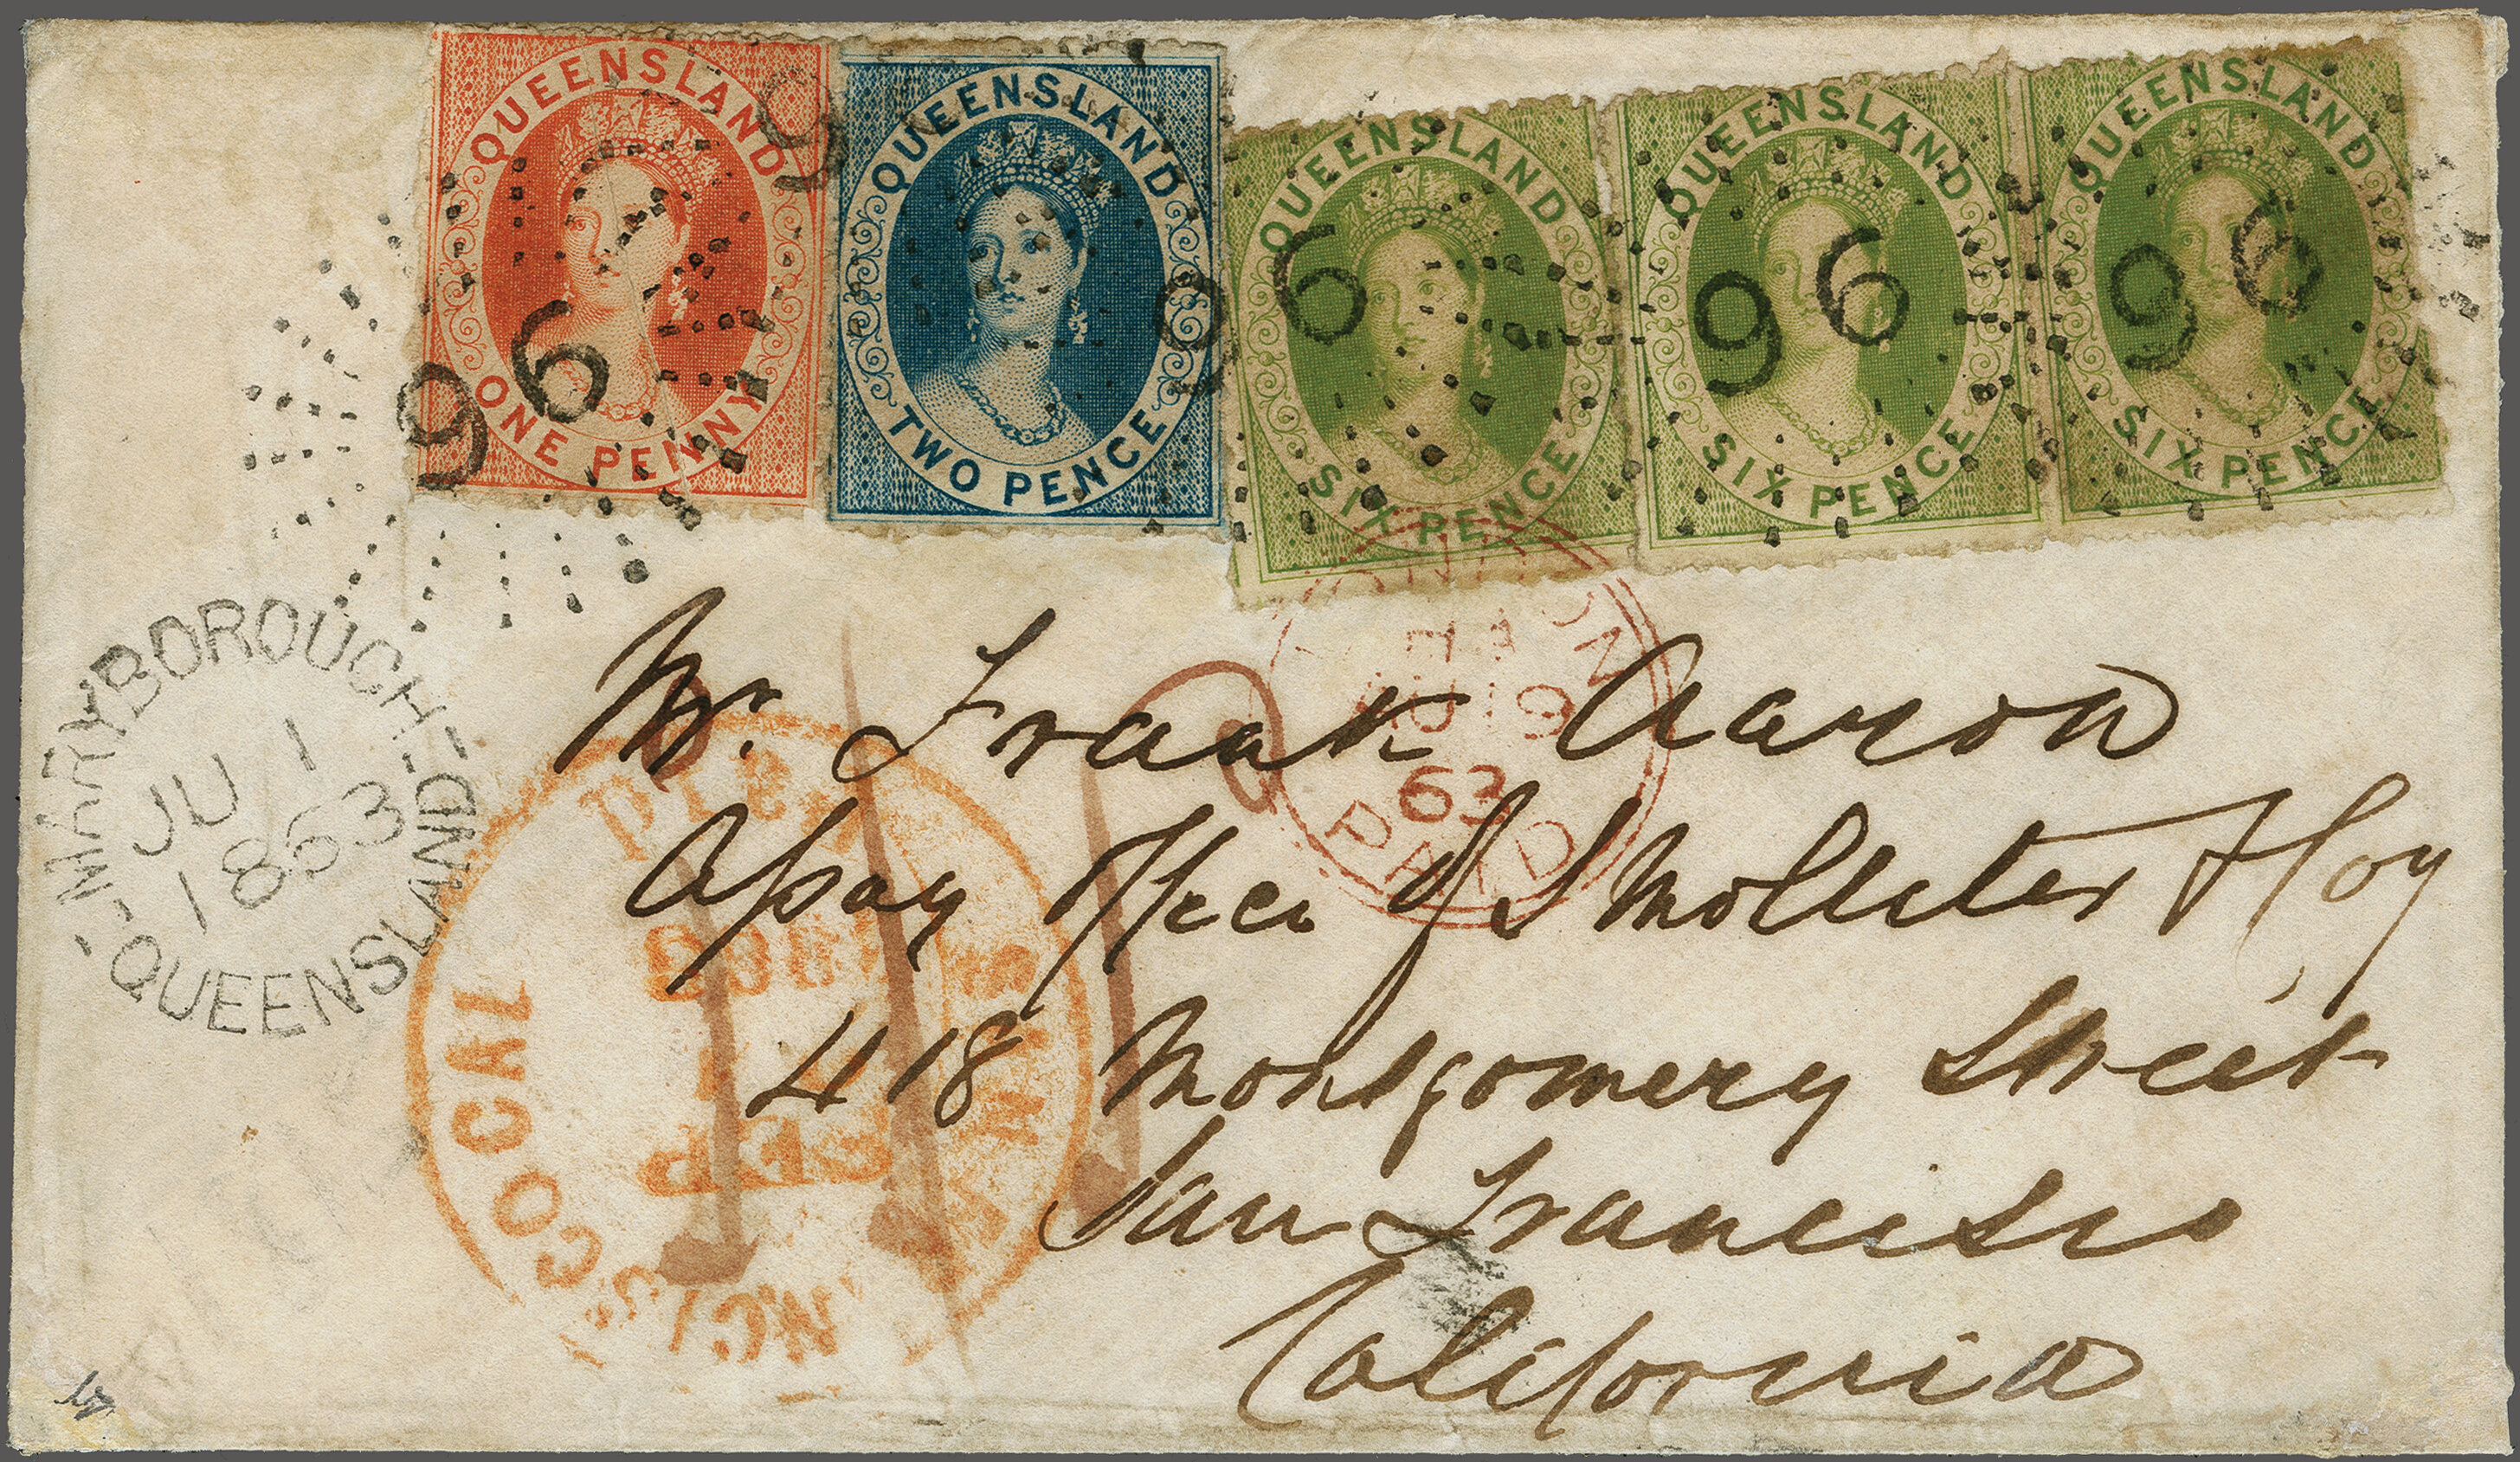 QUEENSLAND
ONE PENNY
QUEENSLAND
TWO PENCE
QUEENSLAND
SIX PENCE
QUEENSLAND
SIX PENCE
QUEENSLAND
SIX PENCE
96
96
96
96
96
MARYBOROUGH
JU 1
1863
QUEENSLAND
LONDON
AU 19
63
PAID
LOCAL
Mr. Frank Aaron
Assay Office of Molliter & Coy
418 Montgomery Street
San Francisco
California